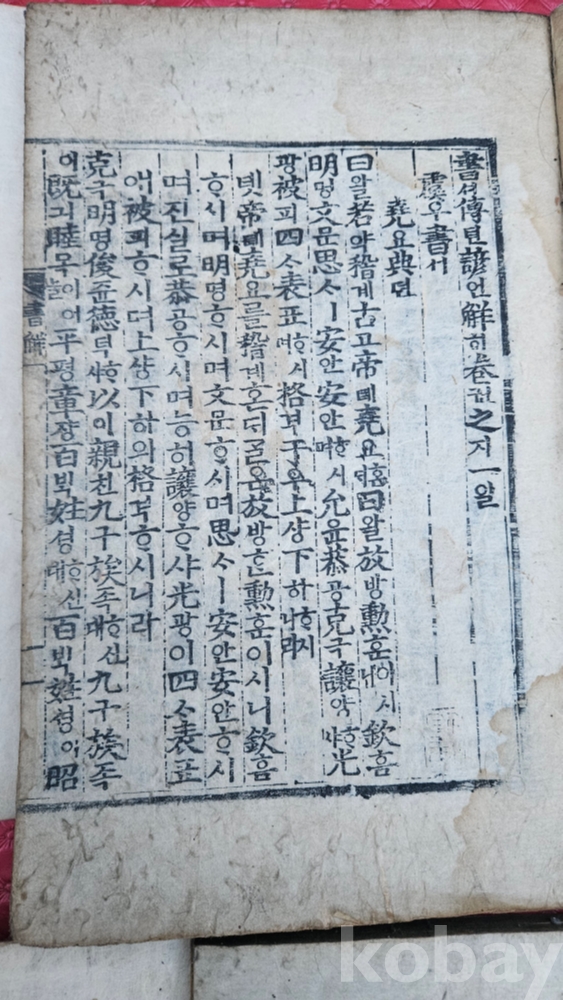 書셔傳뎐諺언解ᄒᆡ卷권之지一일
虞우書셔
堯요典뎐
曰왈若약稽계古고帝뎨堯요ᄒᆞᆫᄃᆡ曰왈放방勳훈이시니欽흠
明명文문思ᄉᆞㅣ安안安안ᄒᆞ시며允윤恭공克극讓양ᄒᆞ샤光
광被피四ᄉᆞ表표ᄒᆞ시며格격于우上샹下하ᄒᆞ시니라
녯帝뎨堯요를稽계혼ᄃᆡᄀᆞᆯ온放방勳훈이시니欽흠
ᄒᆞ시며明명ᄒᆞ시며文문ᄒᆞ시며思ᄉᆞㅣ安안安안ᄒᆞ시
며진실로恭공ᄒᆞ시며능히讓양ᄒᆞ샤光광이四ᄉᆞ表표
애被피ᄒᆞ시며上샹下하의格격ᄒᆞ시니라
克극明명俊쥰德덕ᄒᆞ샤以이親친九구族족ᄒᆞ신대九구族족
이旣긔睦목이어늘平평章쟝百ᄇᆡᆨ姓셩ᄒᆞ신대百ᄇᆡᆨ姓셩이昭
書解一
一
kobay